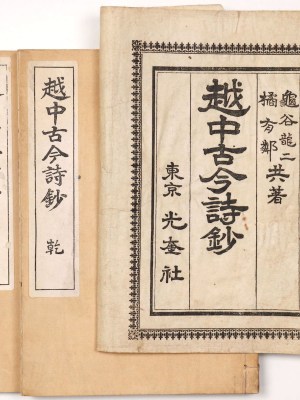 龜谷龍二
橘有鄰
共著
越中古今詩鈔
東京 光奎社
越中古今詩鈔
乾